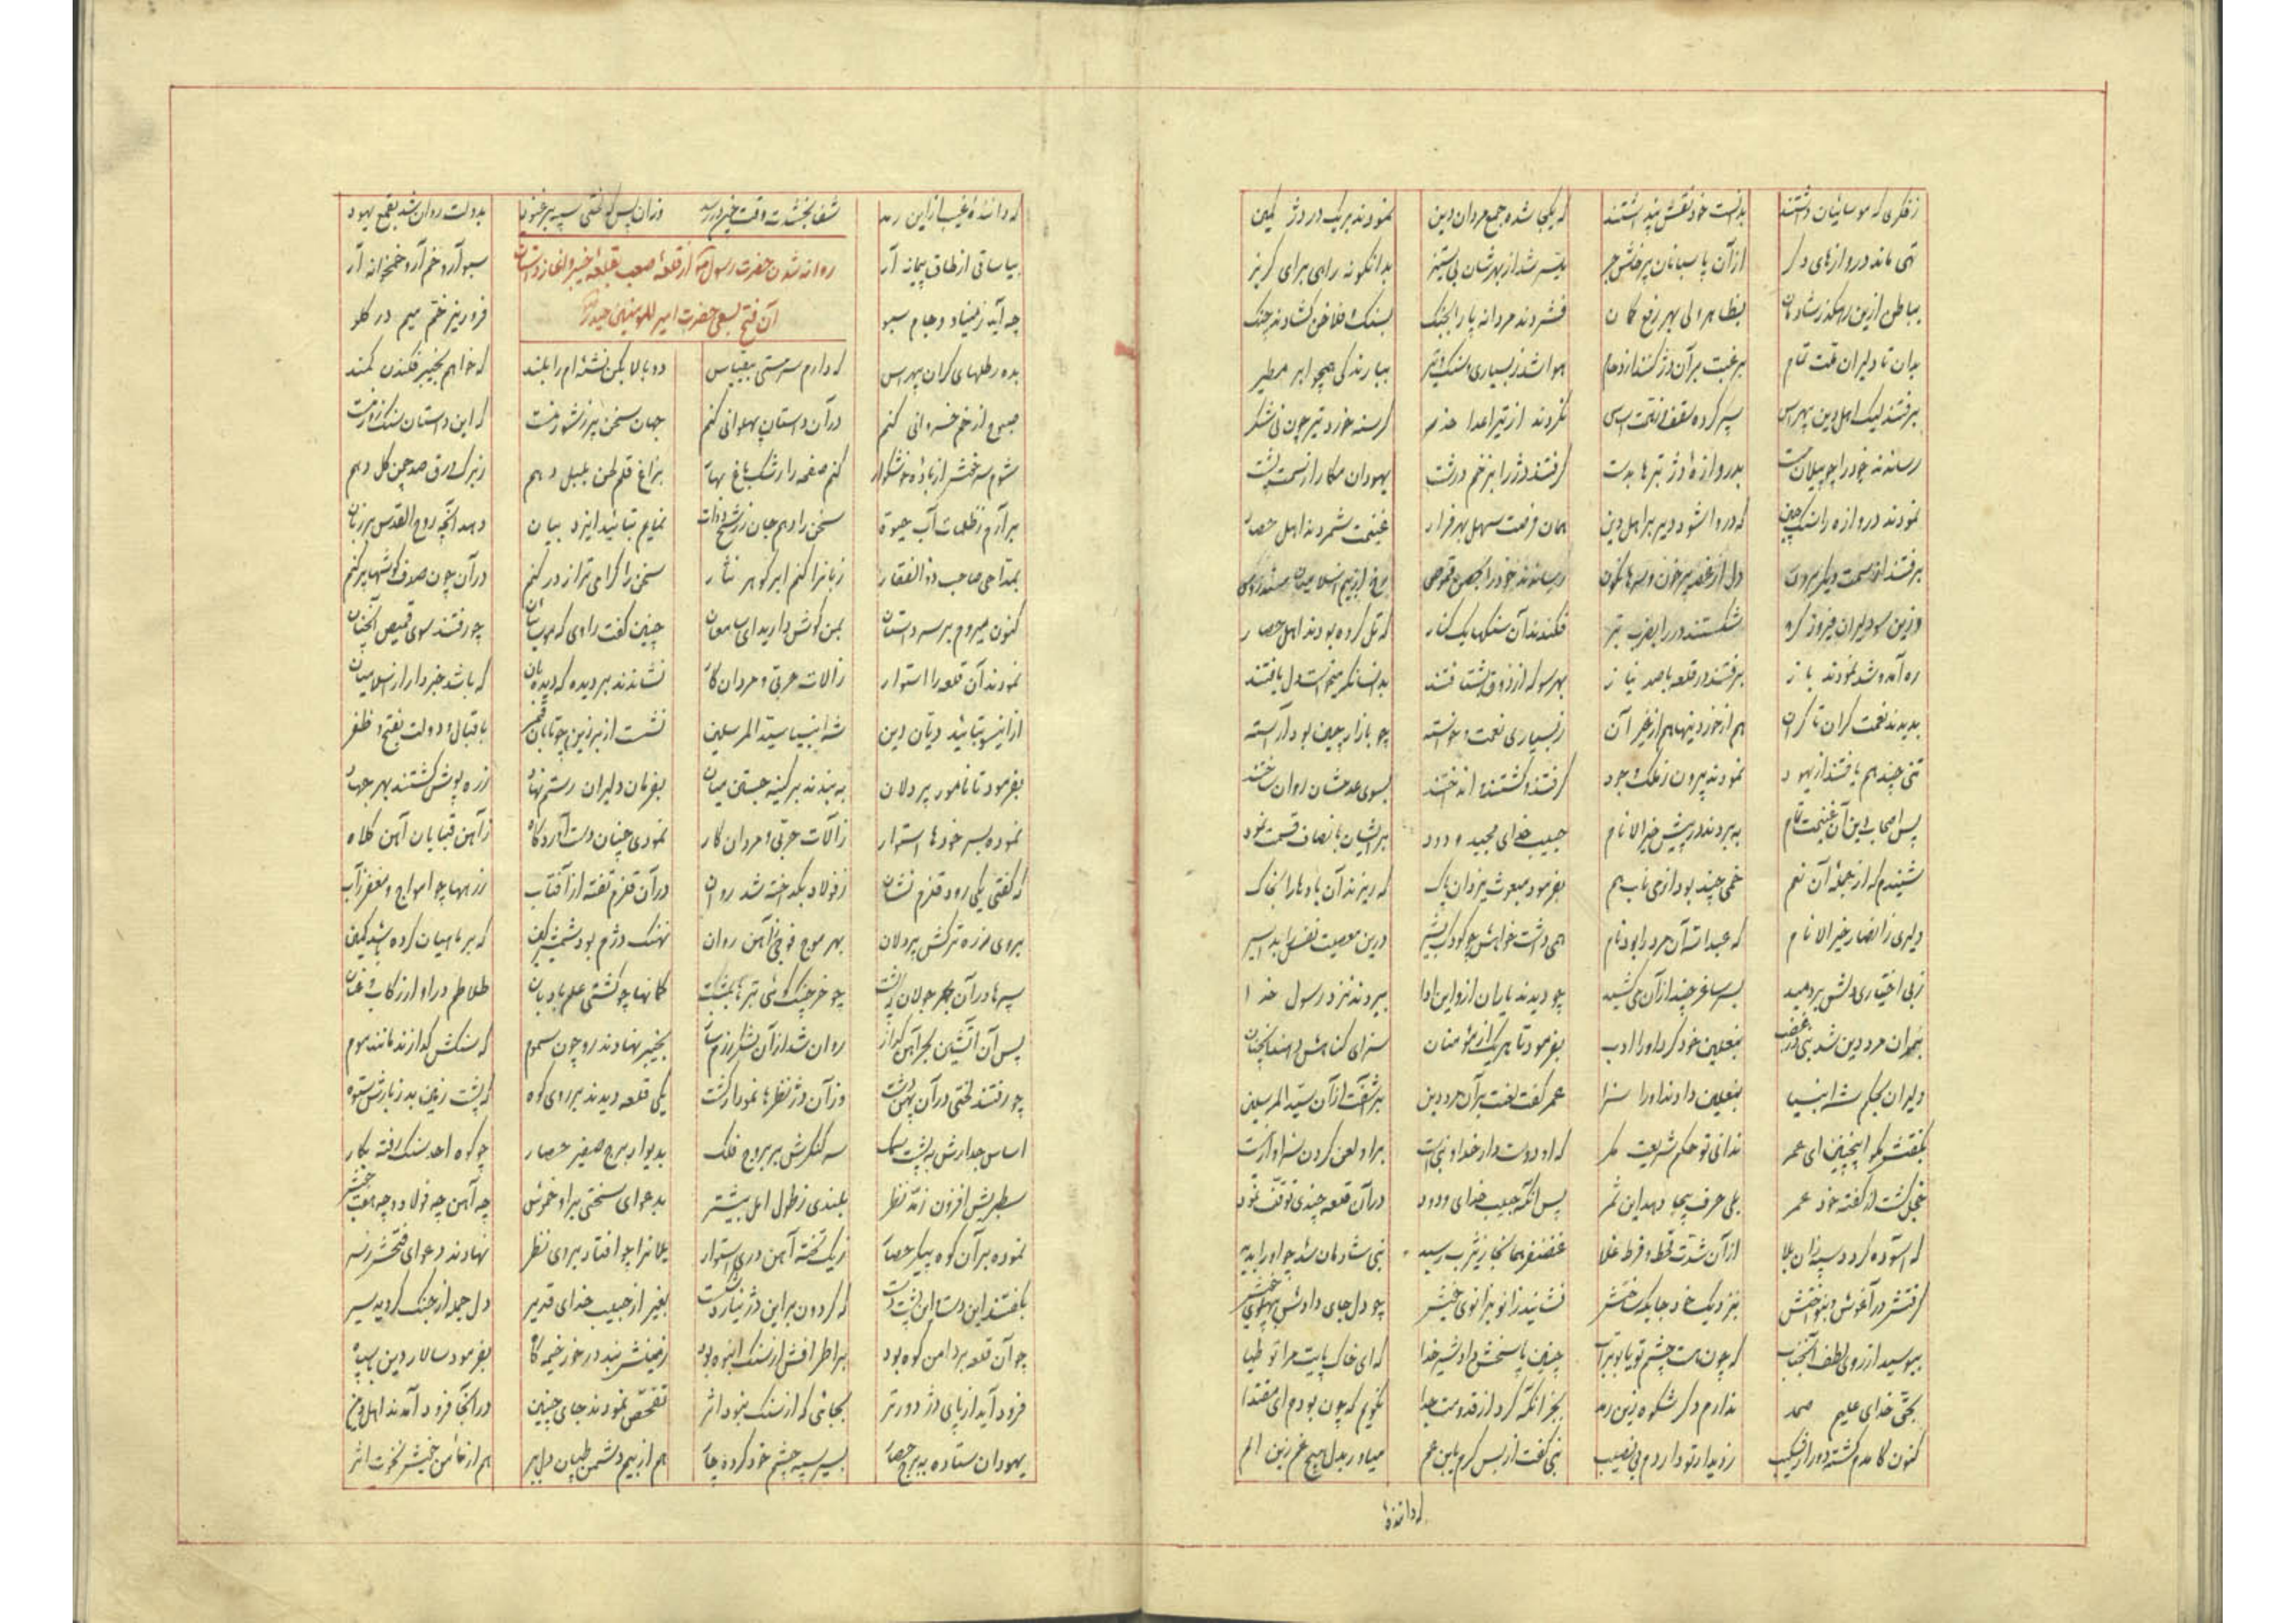 زفکری که موسائیان داشتند بدانست خود نقش پنداشتند که یکجا شده جمع مردان دین نمودند بر یک در دژ کمین
تهی ماند دروازهای دگر از آن پاسبانان پرخاش‌خر میسر شد از بهرشان بی‌ستیز بدانگونه راهی برای گریز
بباطن ازین رهگذر شادمان بظاهر ولی بهر رفع گمان فشردند مردانه پا را بجنگ بسنگ فلاخن گشادند چنگ
بدان تا دلیران همت تمام برغبت بر آن در کنند ازدحام هوا شد ز بسیاری سنگ و تیر ببارندگی همچو ابر مطیر
برفتند لیک اهل دین بهراس سپر کرده سقف نکردند از تیر اعدا حذر گرسنه خورد تیر چون نی‌شکر
رساندند خود را چو پیلان مست بدروازهٔ دژ تبرها بدست گرفتند دژ را بزخم درشت یهودان مکار از سمت پشت
نمودند دروازه را که در وا شود دیر بر اهل دین همان فرصت سهل بهر فرار غنیمت شمردند اهل حصار
برفتند از سمت دیگر برون دل از غصه پرخون و سرها نگون رساندند خود را بحصن قموص
وزین سو دلیران فیروزگر شکستند در را بضرب تبر فکندند آن سنگها یک کنار که تل کرده بودند اهل حصار
ره آمد و شد نمودند باز برفتند در قلعه با صد نیاز بهر سو که از ذوق بشتافتند بدانسان که میخواست دل یافتند
بدیدند نعمت کران تا کران هم از خوردنیها هم از غیر آن ز بسیاری نعمت و خواسته چو بازار چین بود آراسته
تنی چند هم یافتند از یهود نمودند بیرون ز ملک وجود گرفتند و کشتند و انداختند بسوی عدمشان روان ساختند
پس اصحاب دین آن غنیمت تمام ببردند در پیش خیرالانام حبیب خدای مجید ودود بر ایشان بانصاف قسمت نمود
شنیدم که از جملهٔ آن نعم خمی چند بود از می ناب هم بفرمود مبعوث یزدان پاک که ریزند آن بادها را بخاک
دلیری ز انصار خیرالانام که عبدالله آن مرد را بود نام همی داشت خواهش چو کودک بشیر درین معصیت نفس را بد اسیر
ز بی اختیاری دلش بردمید بسر ساغر چند از آن می کشید چو دیدند یاران ازو این ادا ببردند نزد رسول خدا
بر آن مرد دین شد نبی در غضب بنعلین خود کرد او را ادب بفرمود تا هریک از مؤمنان سزای گناهش دهند آنچنان
دلیران بحکم شه انبیا بنعلین دادند او را سزا عمر گفت لعنت بر آن مرد دین برآشفت از آن سید المرسلین
بگفتش مگو اینچنین ای عمر ندانی تو حکم شریعت مگر که او دوست دارد خدا و نبی‌ست بر او لعن کردن سزاوار نیست
خجل گشت از گفته خود عمر بلی حرف بیجا دهد این ثمر پس آنگه حبیب خدای ودود در آن قلعه چندی توقف نمود
که آسوده گردد سپه زان بلا از آن شدت قحط و فرط غلا غضنفر همانجا ز یثرب رسید نبی شادمان شد چو او را بدید
گرفتش در آغوش و بنواختش بنزدیک خود جایگه ساختش نشانید زانو بزانوی خویش چو دل جای دادش بپهلوی خویش
ببوسید از روی لطف آنجناب که چون است چشم تو یا بوتراب چنین پاسخش داد شیر خدا که ای خاک پایت مرا توتیا
بحق خدای علیم صمد ندارم دگر شکوه زین رمد بجز آنکه کرد از قدومت جدا نگویم که چون بودم ای مقتدا
کنون کآمدم گشته دور از شکیب ز دیدار تو دارد م بی‌نصیب نبی گفت از بس کرم با ابن عم میاور بدل هیچ غم زین الم
که دانندهٔ
که دانندهٔ غیب ازاین رمد شفا بخشدت وقت خیر در رسد وزان پس بدولت روان شد بقمع یهود
روانه شدن حضرت رسول از قلعهٔ صعب بقلعهٔ خیبر و آغاز داستان
آن فتح بسعی حضرت امیرالمؤمنین حیدر
بیا ساقی از طاق پیمانه آر سبو آر و خم آر و خمخانه آر
چه آید ز مینا و جام و سبو فرو ریز خم خم میم در گلو
بده رطلهای گران بیهراس که دارم سر مستی بیقیاس دو بالا بکن نشئه‌ام را بلند که خواهم بخیبر فکندن کمند
صبوح از خم خسروانی کنم در آن داستان پهلوانی کنم جهان سخن پر ز شور منست که این داستان سنگ زور منست
شوم سرخوش از بادهٔ خوشگوار کنم صفحه را رشک باغ بهار بزاغ قلم لحن بلبل دهم ز برگ ورق صد چمن گل دهم
برآرم ز ظلمات آب حیوة سخن را دهم جان ز رشح دوات نمایم بتائید ایزد بیان دمد آنچه روح القدس بر زبان
بمداحی صاحب ذوالفقار زبان را کنم ابر گوهر نثار سخن را گرامی‌تر از در کنم در آن چون صدف گوشها پر کنم
کنون میروم بر سر داستان بمن گوش دارید ای سامعان چنین گفت راوی که موسائیان چو رفتند سوی قمیص آنچنان
نمودند آن قلعه را استوار ز آلات حربی و مردان کار نشاندند بر دیده که دیده‌بان که باشد خبردار از اسلامیان
ازانسو بتائید دیان دین شه انبیا سید المرسلین نشست از بر زین چو تابان قمر باقبال و دولت بفتح و ظفر
بفرمود تا نامور پردلان ببندند بر کینه جستن میان بفرمان دلیران رستم نهاد زره پوش گشتند بهر جهاد
نموده بسر خودها استوار ز آلات حربی و مردان کار نمودی چنان دشت آوردگاه ز آهن قبایان آهن کلاه
که گفتی یکی رود قلزم نشان ز فولاد بگداخته شد روان در آن قلزم تفته از آفتاب زرهها چو امواج و مغفر حباب
بروی زره ترکش پردلان بهر موج فوجی ز آهن روان نهنگ دژم بود شمشیر کین که بر ماهیان کرده باشد کمین
سپرها در آن بحر جولان چو خرچنگ نی تیرها بمشت کمانها چو کشتی علم بادبان طلاطم در او از رکاب و عنان
پس آن آتشین بحر آهن گداز روان شد از آن بخیبر نهادند رو چون سموم که سنگش گدازند مانند موم
چو رفتند لختی در آن پهن دشت وز آن دژ نظرها نمودار گشت یکی قلعه دیدند بر روی کوه که پشت زمین بد ز بارش ستوه
اساس جدارش به پشت سمک سر کنگرش بر بروج فلک بدیوار برج صغیر حصار چو کوه احد سنگ رفته بکار
سطبریش افزون ز مد نظر بلندی ز طول امل بیشتر بدعوای سختی بر او خموش چه آهن چه فولاد و چه هفت جوش
نموده بر آن کوه پیکر حصار ز یک تخته آهن دری استوار یلان را چو افتاد بر وی نظر نهادند دعوای فتحش ز سر
بگفتند این دست این پشت دست که گردون بر این دژ نیارد شکست بغیر از حبیب خدای قدیر دل جمله از جنگ گردید سیر
چو آن قلعه بر دامن کوه بود بر اطرافش از سنگ انبوه بود زمینش نبد درخور خیمه گاه بفرمود سالار دین با سپاه
فرود آید از پای دژ دورتر بجائی که از سنگ نبود اثر تفحص نمودند جای چنین در آنجا فرود آمدند اهل دین
یهودان ستاده به برج حصار بسیر سپه چشم خود کرده چار هم از بیم دشمن طپان دل ببر هم از مأمن خویش نخوت اثر